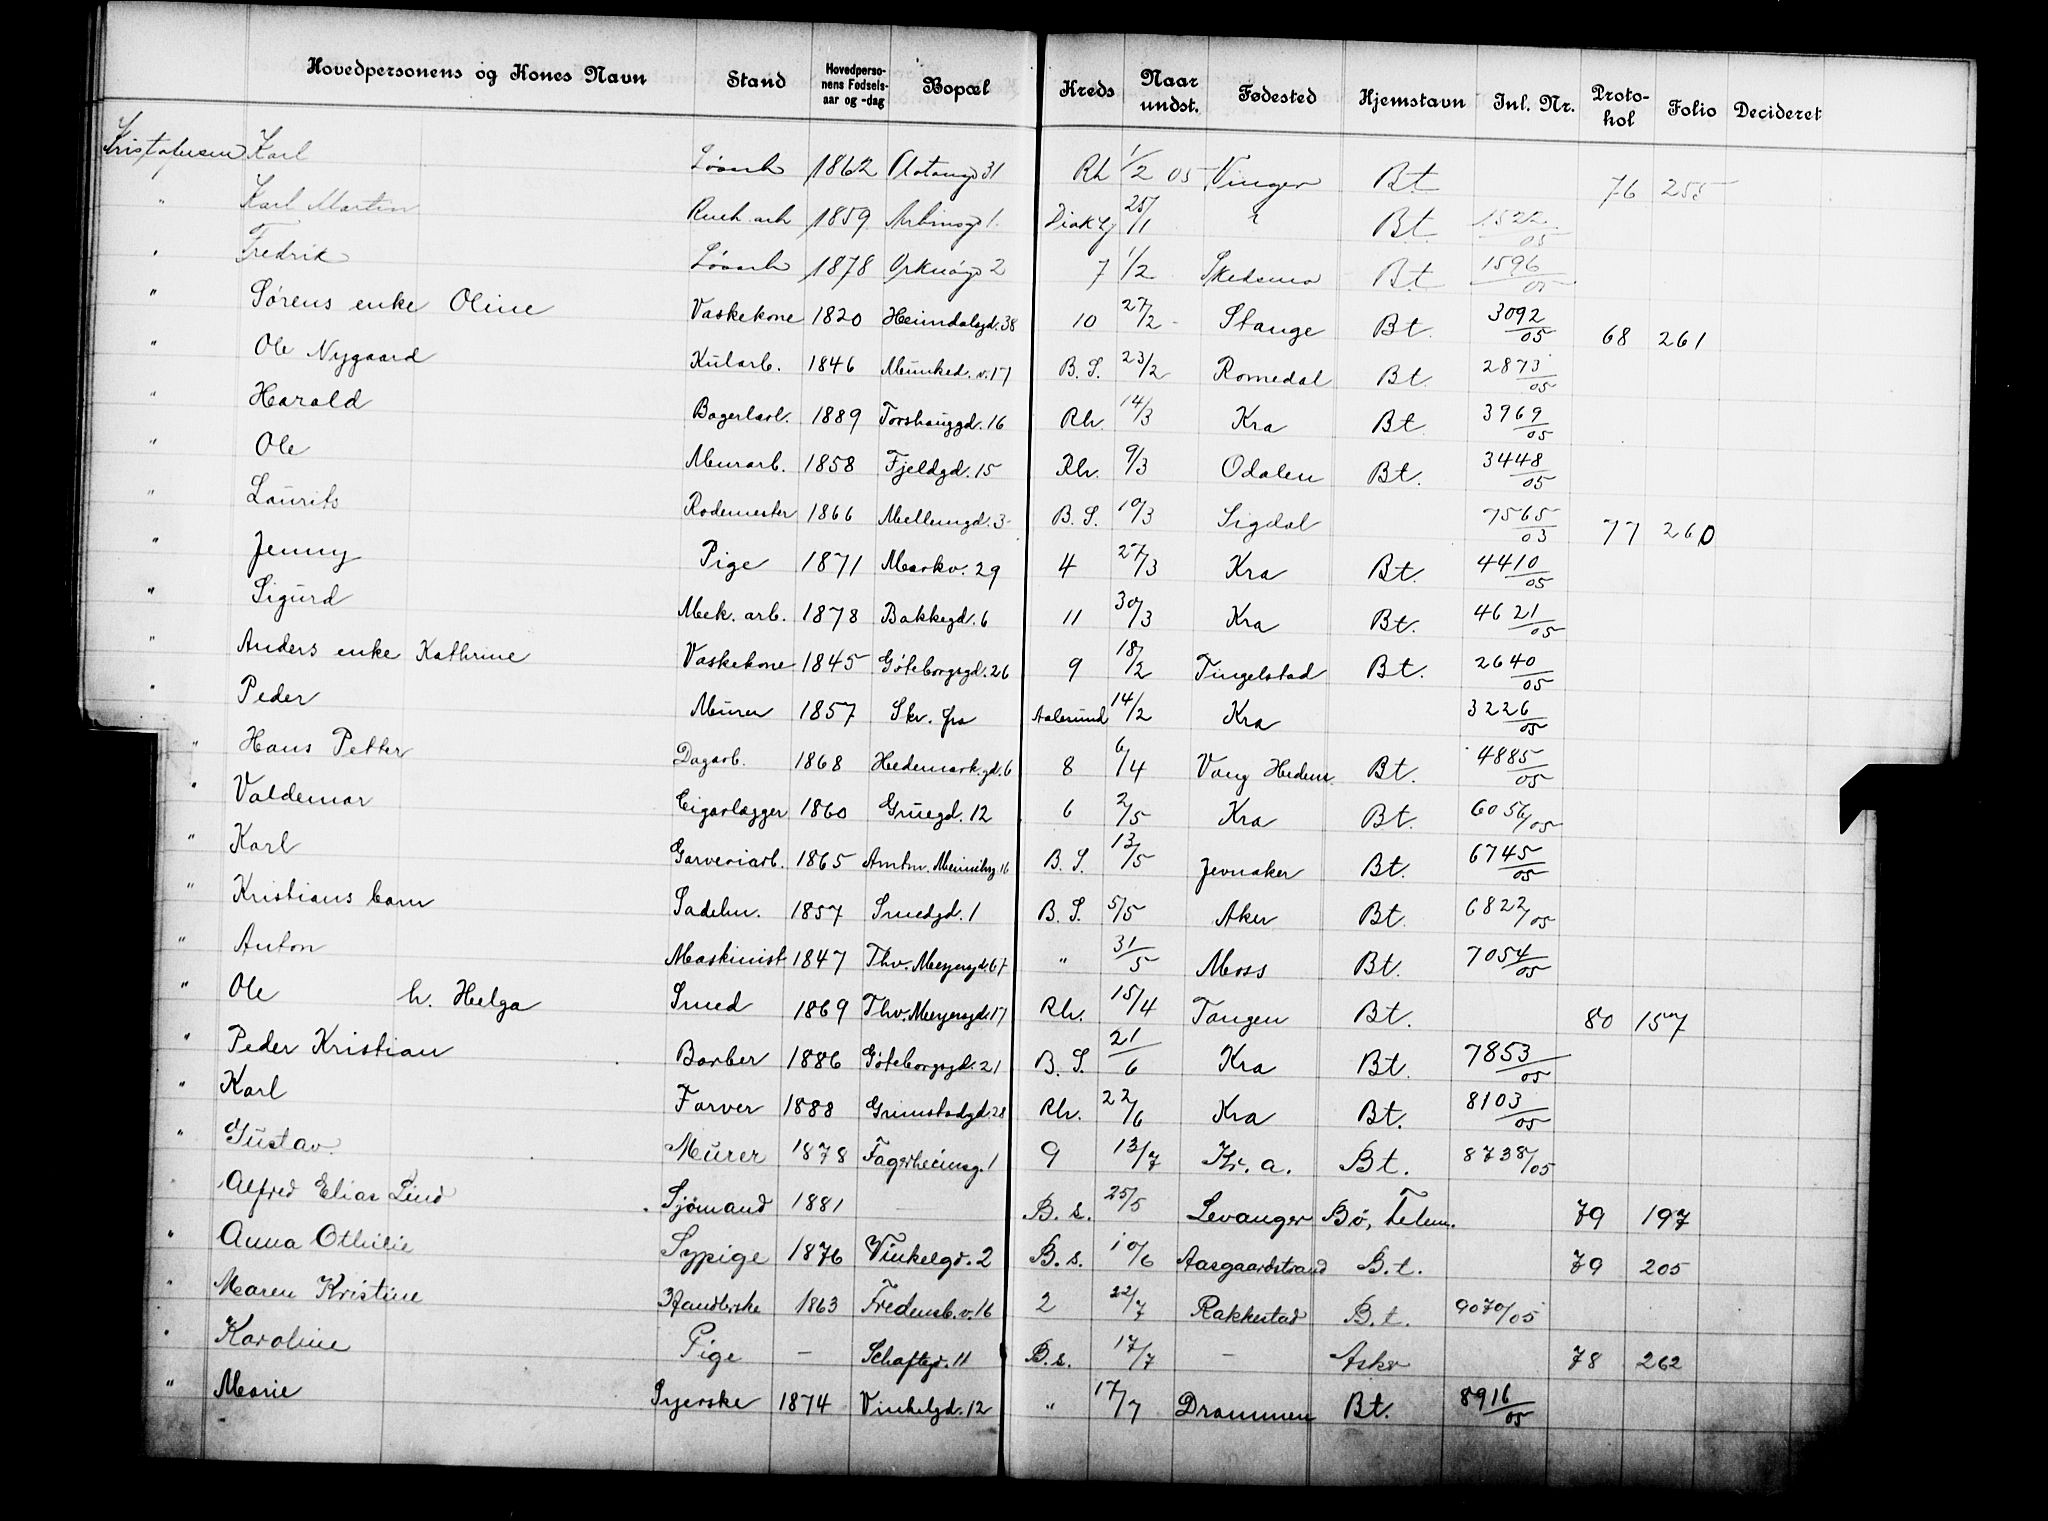 Hovedpersonens og Kones Navn | Stand | Hovedperso-nens Fødsels-aar og -dag | Bopæl | Kreds | Naar undst. | Fødested | Hjemstavn | Inl. Nr. | Proto-kol | Folio | Decideret
Kristofersen Karl | Løsarb | 1862 | 31 | Rh | 1/2 05 | Vinger | Bt | 76 | 255
" Karl Martin | arb | 1859 | 1 | 25/11 | Bt | 1522/05
" Fredrik | Løsarb | 1878 | 2 | 7 | 1/2 | Skedsmo | Bt | 1596/05
" Sørens enke Oline | Vaskekone | 1820 | Heimdalsgd. 38 | 10 | 27/2 | Stange | Bt. | 3092/05 | 68 | 261
" Ole Nygaard | Kularb. | 1846 | Munked. v. 17 | B. S. | 23/2 | Romedal | Bt. | 2873/05
" Harald | Bagerlærl. | 1889 | Torshauggd. 16 | Rh. | 14/3 | Kra | Bt. | 3969/05
" Ole | Murarb. | 1858 | Fjeldgd. 15 | Rh. | 9/3 | Odalen | Bt. | 3448/05
" Laurits | Rodemester | 1866 | Mellemgd. 3 | B. S. | 10/3 | Sigdal | 7565/03 | 77 | 260
" Jenny | Pige | 1871 | Markv. 29 | 4 | 27/3 | Kra | Bt. | 4410/05
" Sigurd | Mek. arb. | 1878 | Bakkegd. 6 | 11 | 30/3 | Kra | Bt. | 4621/05
" Anders enke Kathrine | Vaskekone | 1845 | Göteborgsgd. 26 | 9 | 18/2 | Tingelstad | Bt. | 2640/05
" Peder | Murer | 1857 | Skr. fra | Aalesund | 14/2 | Kra | 3226/05
" Hans Petter | Dagarb. | 1868 | Hedemark.gd. 6 | 8 | 6/4 | Vang Hedem. | Bt. | 4885/05
" Valdemar | Cigarlægger | 1860 | Gruegd. 12 | 6 | 2/5 | Kra | Bt. | 6056/05
" Karl | Garveriarb. | 1865 | 16 | B. S. | 13/5 | Jevnaker | Bt. | 6745/05
" Kristians barn | Sadelm. | 1857 | Smedgd. 1 | B. S. | 5/5 | Aker | Bt. | 6822/05
" Anton | Maskinist | 1847 | Thv. Meyersgd. 67 | " | 31/5 | Moss | Bt. | 7054/05
" Ole h. Helga | Smed | 1869 | Thv. Meyersgd. 17 | Rh. | 15/4 | Tangen | Bt. | 80 | 157
" Peder Kristian | Barber | 1886 | Göteborgsgd. 21 | B. S. | 21/6 | Kra | Bt. | 7853/05
" Karl | Farver | 1888 | Grimstadgd. 28 | Rh. | 22/6 | Kra | Bt. | 8103/05
" Gustav. | Murer | 1878 | Fagerheimsg. 1 | 9 | 13/7 | Kr. a. | Bt. | 8738/05
" Alfred Elias Lind | Sjømand | 1881 | — | B. s. | 25/5 | Levanger | Bø, Telem. | 79 | 197
" Anna Othilie | Sypige | 1876 | Vinkelgd. 2 | B. s. | 10/6 | Aasgaardstrand | B. t. | 79 | 205
" Maren Kristine | Handlerske | 1863 | Fredensb. v. 16 | 2 | 22/7 | Rakkestad | B. t. | 9070/05
" Karoline | Pige | — | Schaftgd. 11 | B. s. | 17/7 | — | Asker | 78 | 262
" Marie | Syerske | 1874 | Vinkelgd. 12 | " | 17/7 | Drammen | Bt. | 8916/05